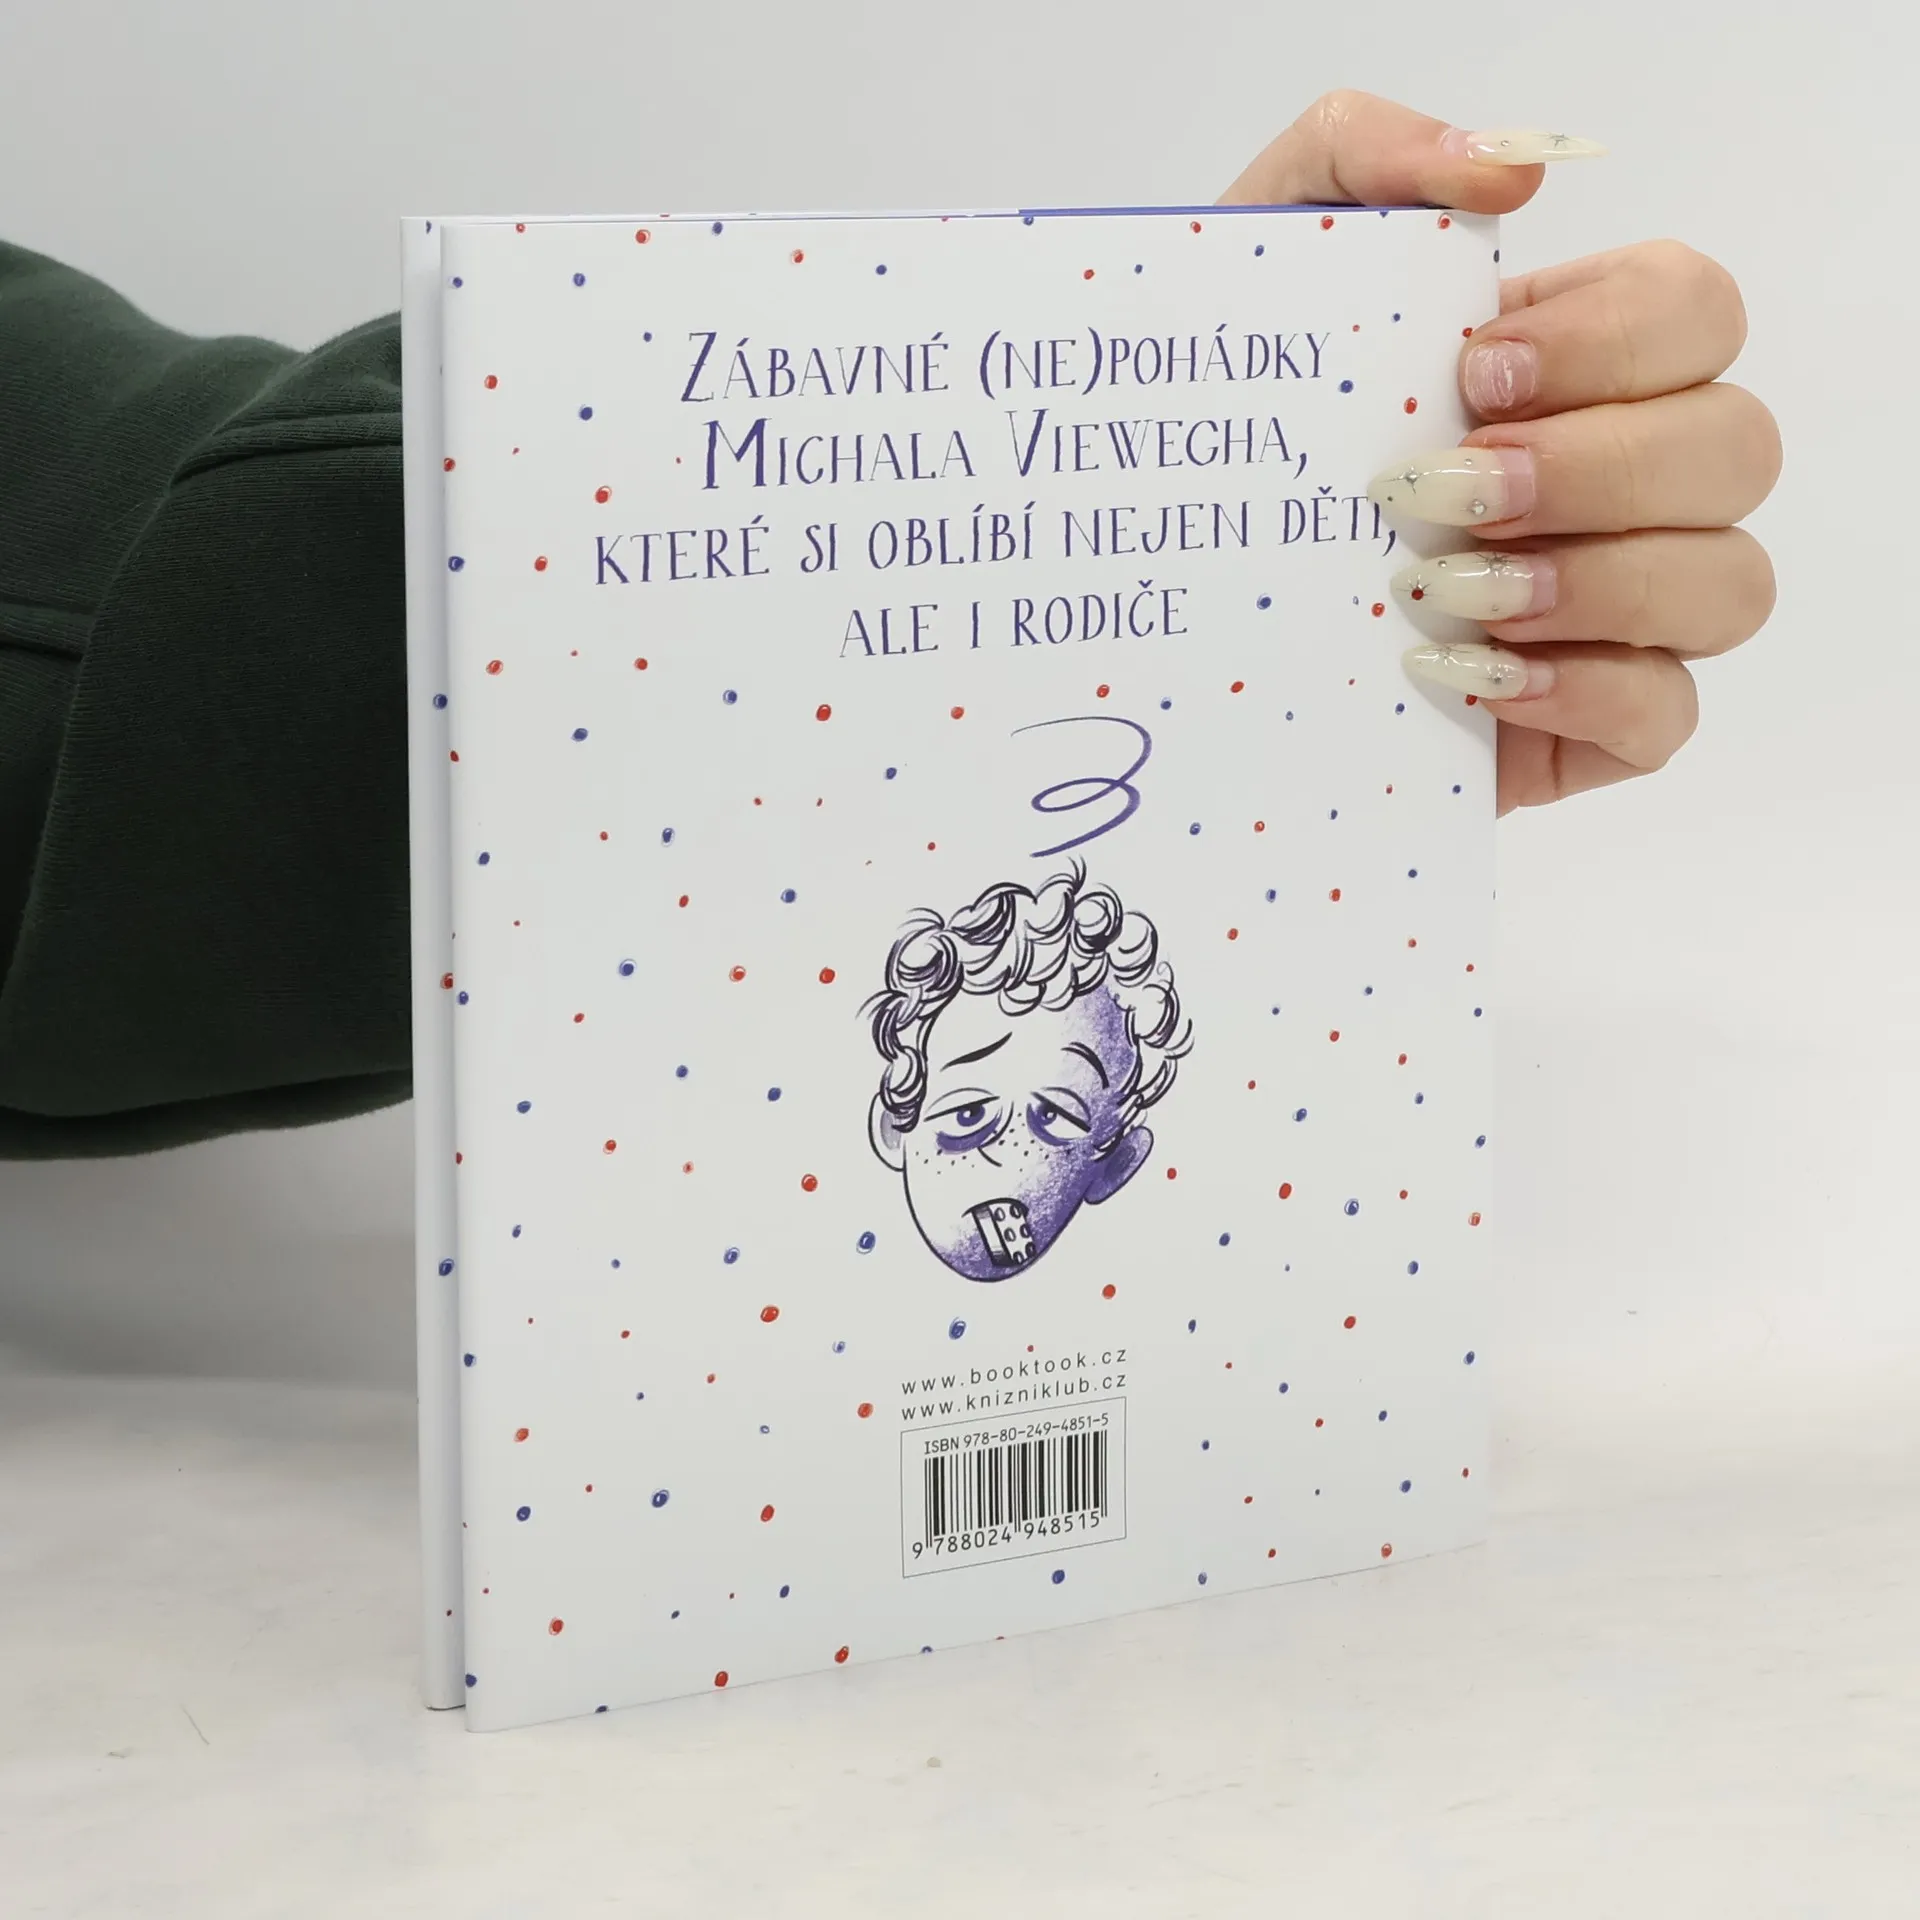 Zábavné (ne)pohádky
Michala Viewegha,
které si oblíbí nejen děti,
ale i rodiče
www.booktook.cz
www.knizniklub.cz
ISBN 978-80-249-4851-5
9 788024 948515